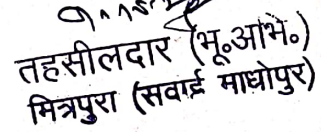 तहसीलदार (भू०आभे०)
मित्रपुरा (सवाई माधोपुर)